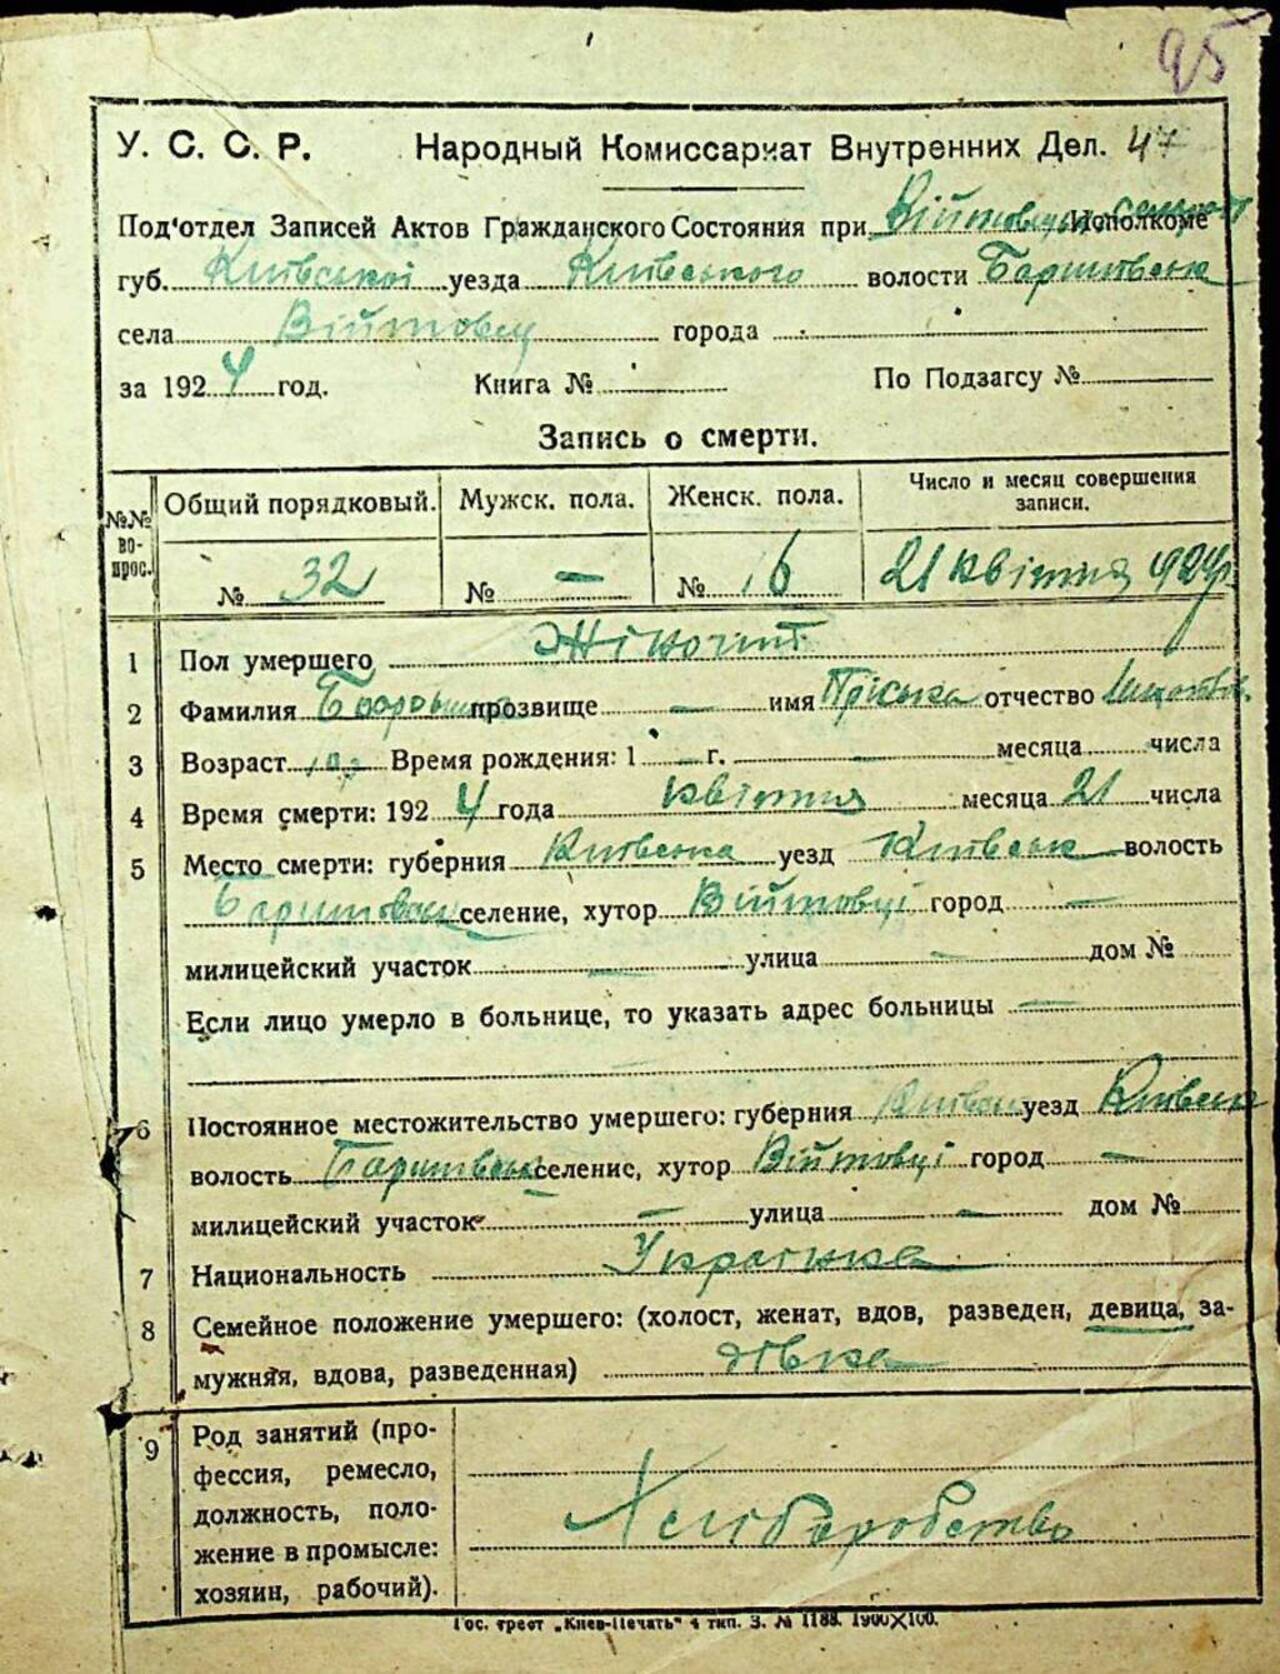 95
У. С. С. Р. Народный Комиссариат Внутренних Дел. 47
Под'отдел Записей Актов Гражданского Состояния при Исполкоме
губ. Київської уезда Київського волости Баришівськ
села Війтовці города
за 1924 год. Книга № По Подзагсу №
Запись о смерти.
№№ вопрос. Общий порядковый. Мужск. пола. Женск. пола. Число и месяц совершения записи.
№ 32 № — № 16 21 квітня 924р.
1 Пол умершего Жіночий
2 Фамилия прозвище — имя Пріська отчество
3 Возраст Время рождения: 1 — г. — месяца числа
4 Время смерти: 1924 года квітня месяца 21 числа
5 Место смерти: губерния Київська уезд Київськ волость
Баришівськ селение, хутор Війтовці город —
милицейский участок — улица — дом №
Если лицо умерло в больнице, то указать адрес больницы —
6 Постоянное местожительство умершего: губерния Київськ уезд Київськ
волость Баришівськ селение, хутор Війтовці город —
милицейский участок — улица — дом №
7 Национальность Українка
8 Семейное положение умершего: (холост, женат, вдов, разведен, девица, за-
мужняя, вдова, разведенная) дівка
9 Род занятий (про-
фессия, ремесло,
должность, поло-
жение в промысле:
хозяин, рабочий).
Хліборобство
Гос. трест „Киев-Печать“ 4 тип. З. № 1188. 1900X100.